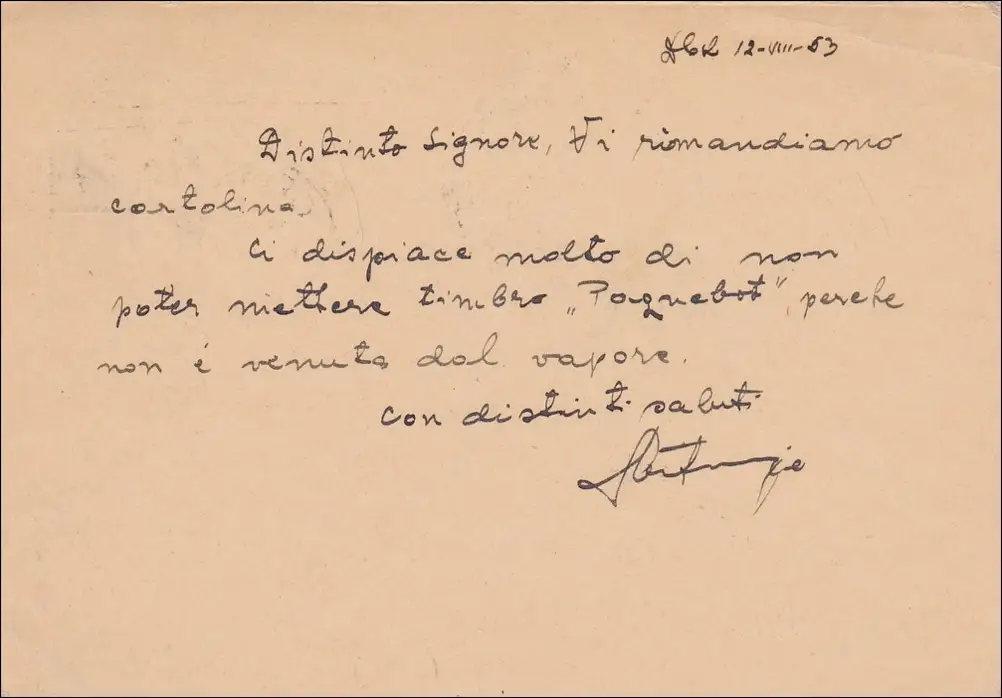 12-VIII-53
Distinto Signore, Vi rimandiamo
cartolina.
Ci dispiace molto di non
poter mettere timbro „Paquebot" perche
non é venuta dal vapore.
con distinti saluti